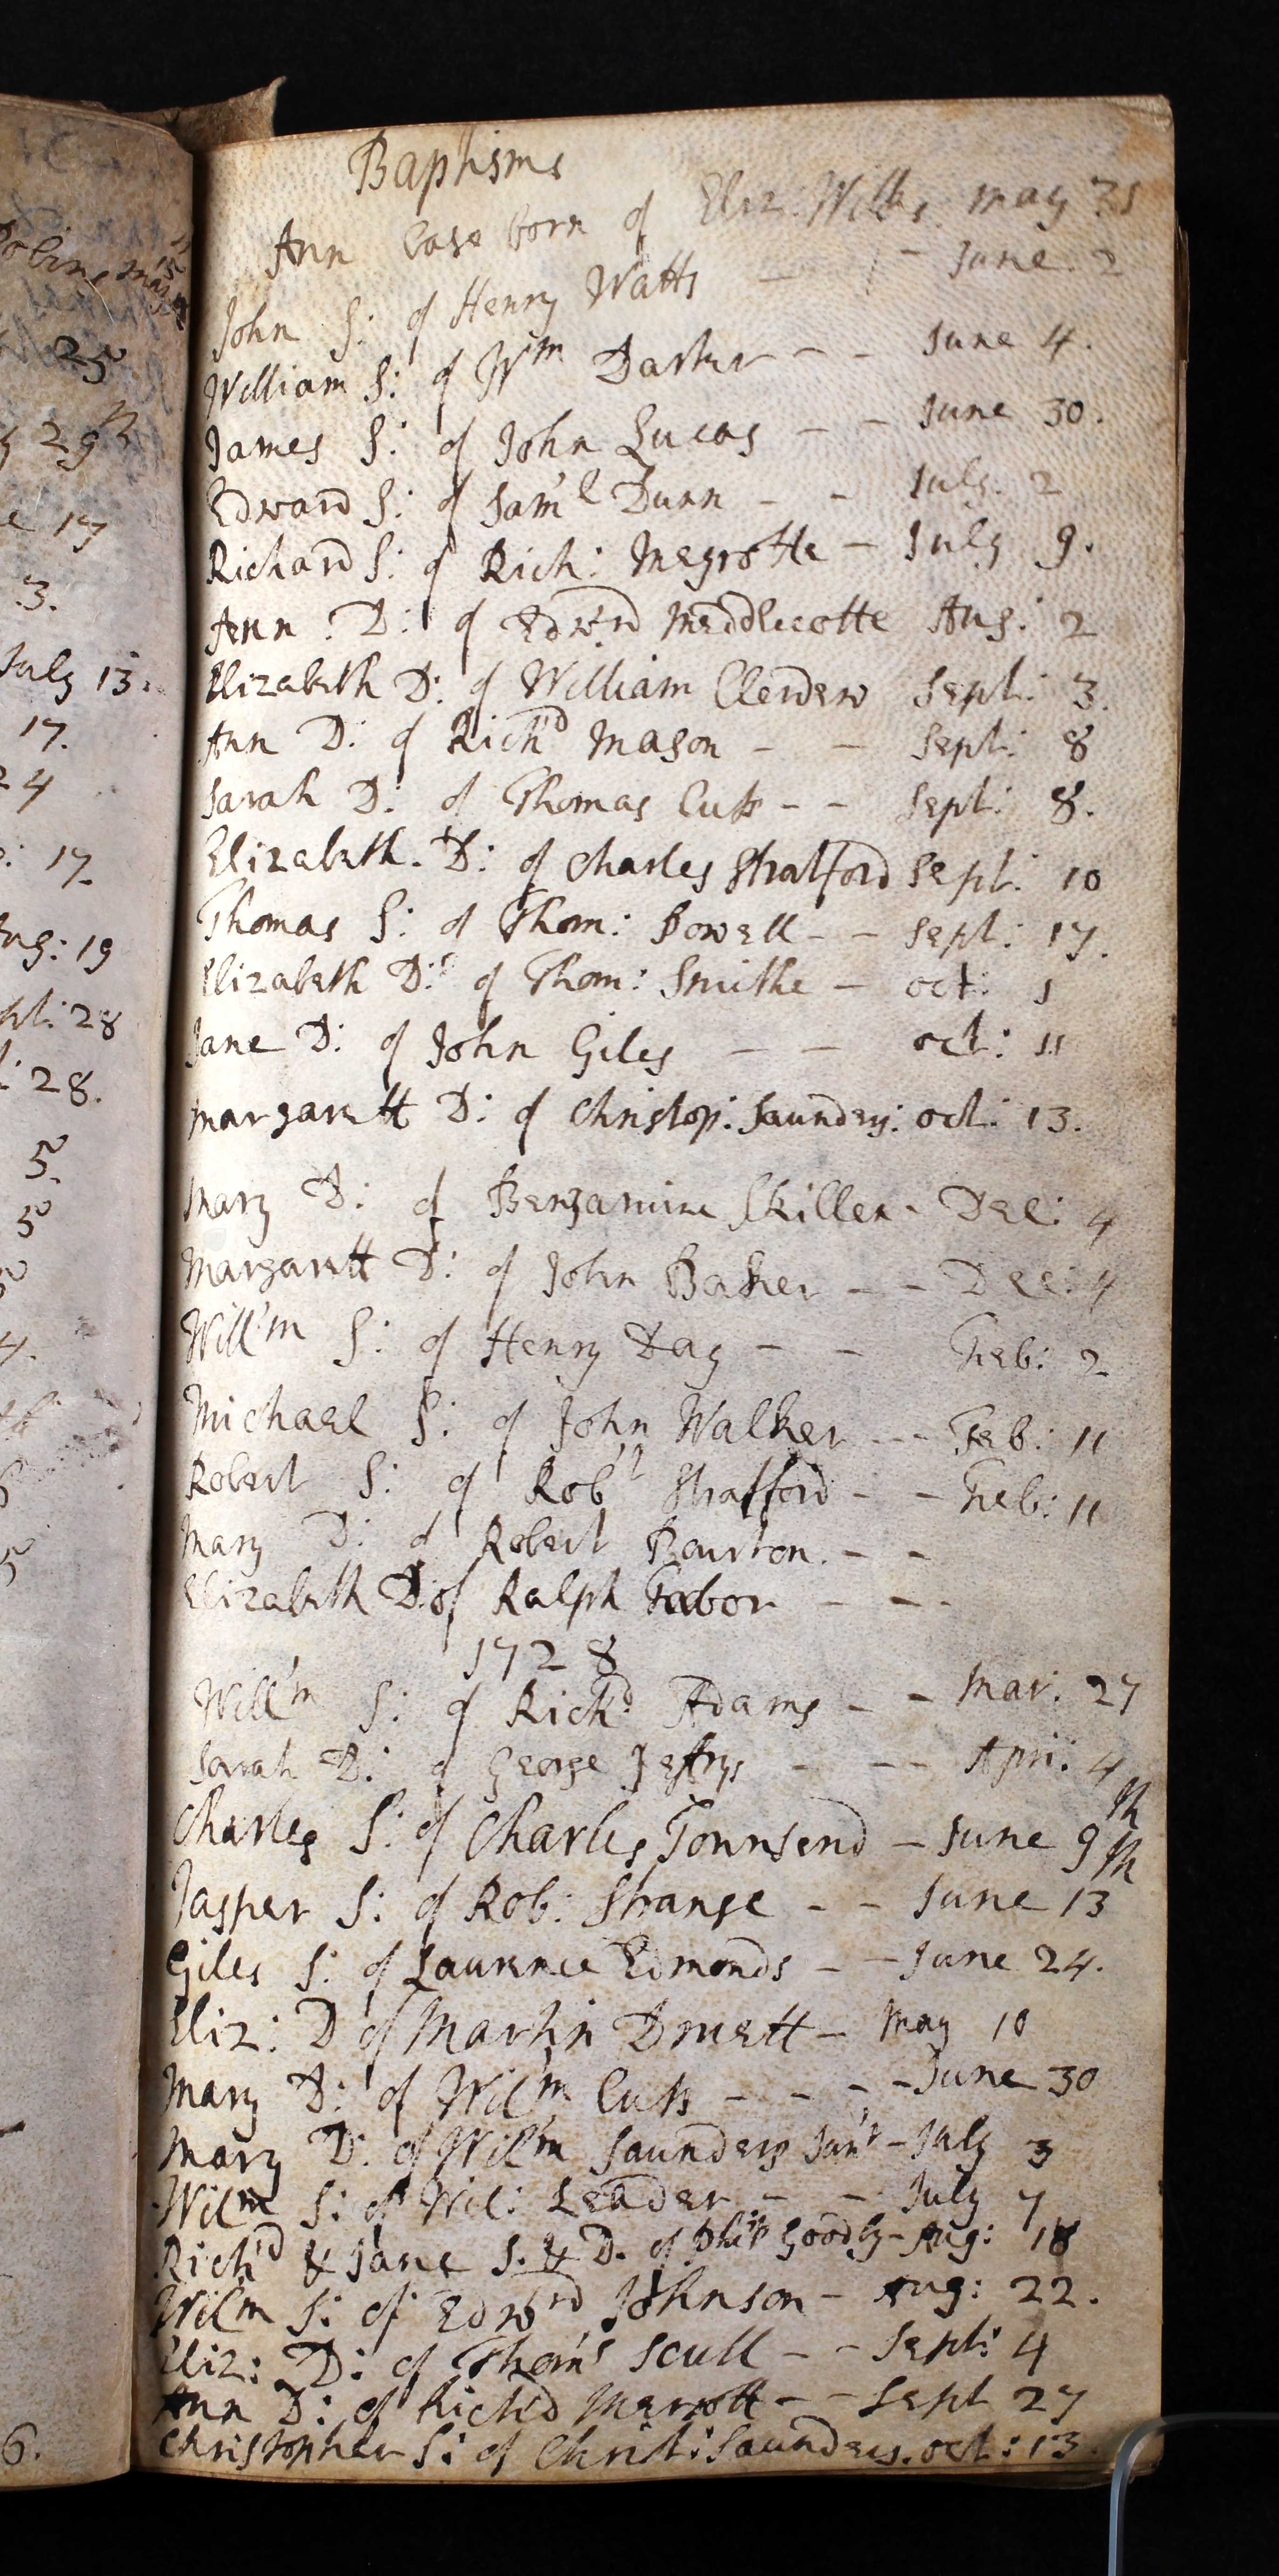 Baptisms
Ann base born of Eliz: Wilks may 25
John S: of Henry Watts - - June
William S: of Wm Darker - - June 4.
James S: of John Lucas - - June 30.
Edward S: of Sam'l Dunn - - July. 2
Richard S: of Rich: Megrotte - July 9.
Ann : D: of Edw'rd Meddlecotte Aug: 2
Elizabeth D: of William Clerdew Sept: 3.
Ann D: of Rich'd Mason - - Sept: 8
Sarah D: of Thomas Cuss - - Sept: 8.
Elizabeth. D: of Charles Stratford Sept: 10
Thomas S: of Thom: Bowell - - Sept: 17.
Elizabeth D: of Thom: Smithe - oct: 1
Jane D: of John Giles - - oct: 11
Margarett D: of Christop: Saunders: oct: 13.
Mary D: of Benjamine Skillen - Dec: 4
Margarett D: of John Baker - - Dec: 4
Will'm S: of Henry Day - - Feb: 2
Michael S: of John Walker - - Feb: 11
Robert S: of Rob't Stratford - - Feb: 11
Mary D: of Robert Bourton. - -
Elizabeth D: of Ralph Tabor - - -
1728
Will'm S: of Rich'd Adams - - Mar: 27
Sarah D: of George Jeffrys - - - Apri: 4
Charles S: of Charles Townsend - June 9th
Jasper S: of Rob: Strange - - June 13th
Giles S: of Laurence Edmonds - - June 24.
Eliz: D of Martin Druett - May 10
Mary D: of Wil'm Cuss - - - - June 30
Mary D: of Wil'm Saunders Jun'r - July 3
Wil'm S: of Wil: Leader - - July 7
Rich'd & Jane S. & D. of Phi'p Goodby - Aug: 18
Wil'm S: of Edw'rd Johnson - Aug: 22.
Eliz: D: of Thom's Scull - - Sept: 4
Ann D: of Rich'd Merrott - - Sept 27
Christopher S: of Christ: Saunders. oct: 13.